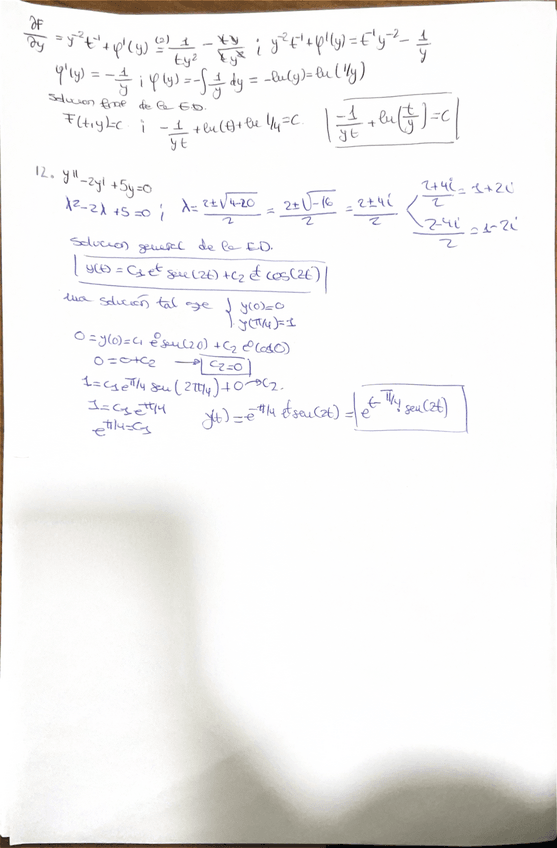 ∂F/∂y = y⁻²t⁻¹ + φ'(y) (2)= 1/ty² - ty/ty² ; y⁻²t⁻¹ + φ'(y) = t⁻¹y⁻² - 1/y
φ'(y) = -1/y ; φ(y) = -∫ 1/y dy = -ln(y) = ln(1/y)
Solución final de la ED.
F(t,y)=c ; -1/yt + ln(t) + ln 1/y = C   -1/yt + ln(t/y) = C
12. y'' - 2y' + 5y = 0
λ² - 2λ + 5 = 0 ; λ = 2±√4-20 / 2 = 2±√-16 / 2 = 2±4i / 2   2+4i / 2 = 1+2i   2-4i / 2 = 1-2i
Solución general de la ED.
y(t) = C₁ eᵗ sen(2t) + C₂ eᵗ cos(2t)
una solución tal que { y(0)=0
y(π/4)=1
0 = y(0) = C₁ e⁰ sen(2·0) + C₂ e⁰ cos(0)
0 = 0 + C₂ → C₂ = 0
1 = C₁ e^π/4 sen(2π/4) + 0 → C₂.
1 = C₁ e^π/4
e^π/4 = C₁   y(t) = e^-π/4 eᵗ sen(2t) = e^t-π/4 sen(2t)